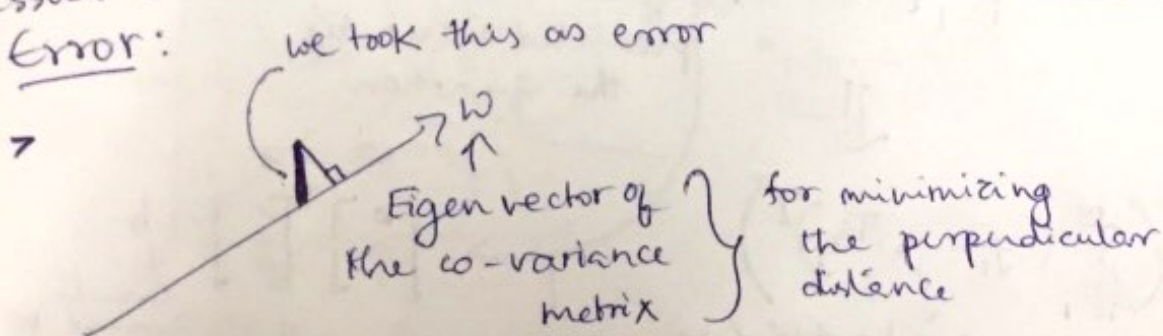 Error:
we took this as error
w
Eigen vector of
the co-variance
metrix
for minimizing
the perpendicular
distance